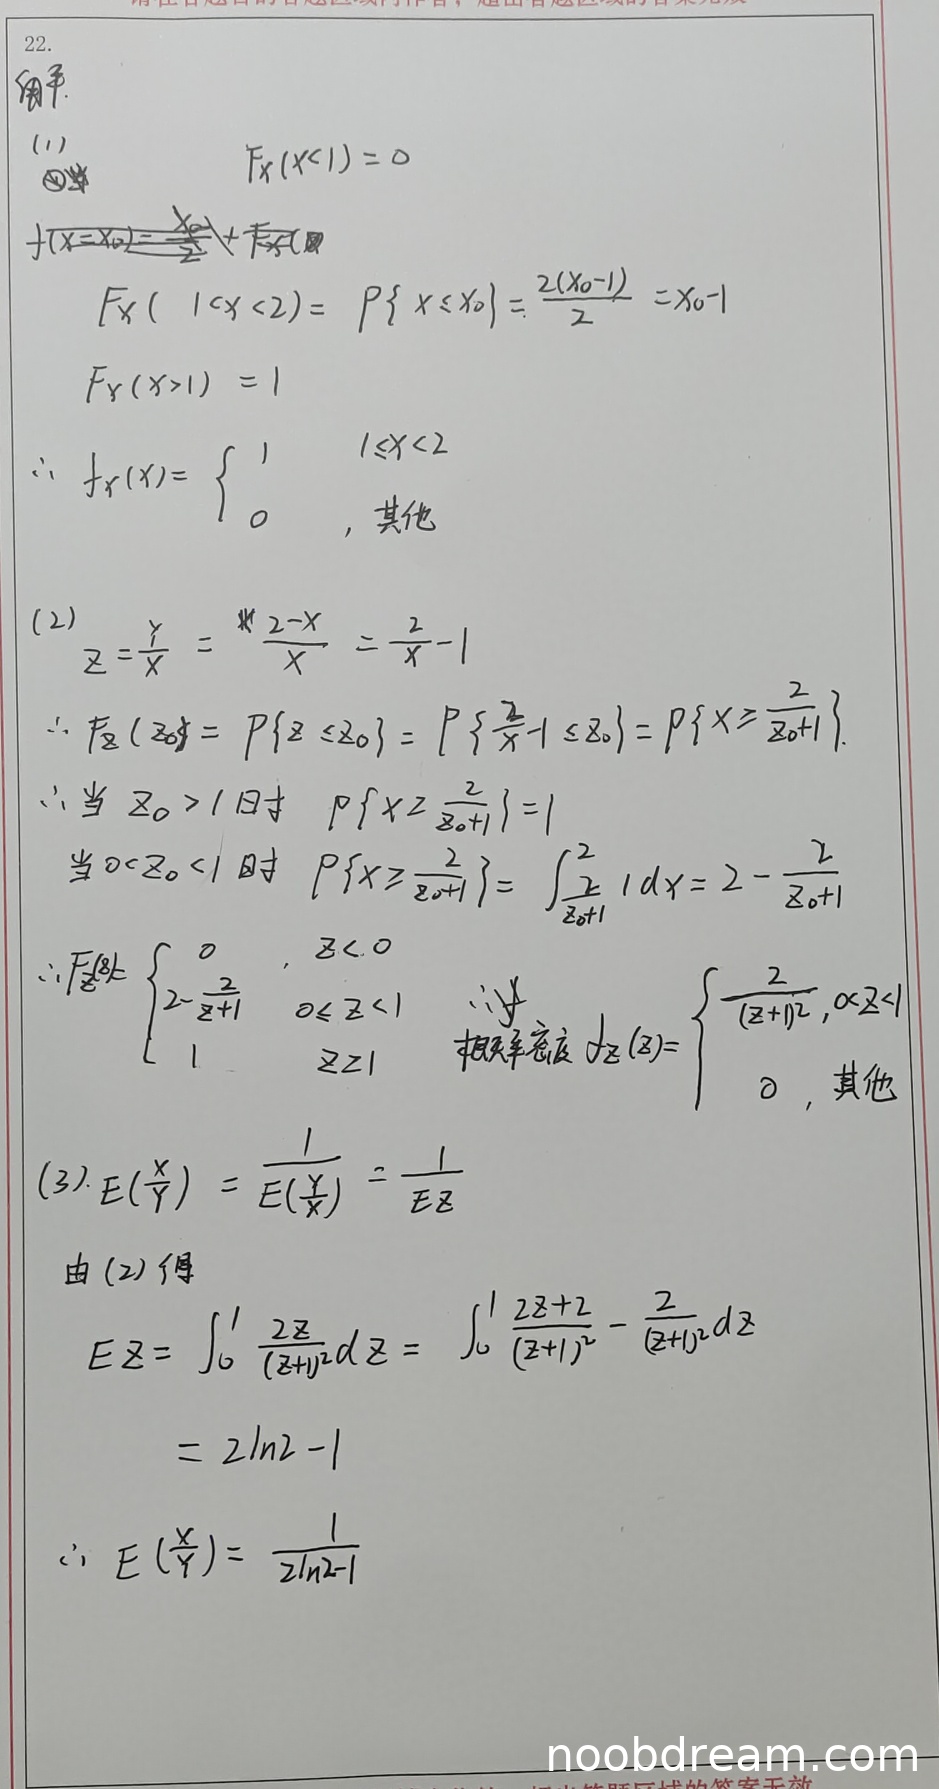 22.
解
(1)
F_X(X<1) = 0
F_X( 1<X<2) = P{X≤X₀} = 2(X₀-1)/2 = X₀-1
F_X(X>1) = 1
∴ f_X(X) = { 1 1≤X<2
0 , 其他
(2) Z = Y/X = 2-X/X = 2/X - 1
∴ F_Z(Z₀) = P{Z≤Z₀} = P{2/X - 1 ≤ Z₀} = P{X ≥ 2/Z₀+1}.
∴ 当 Z₀ > 1 时 P{X ≥ 2/Z₀+1} = 1
当 0<Z₀<1 时 P{X ≥ 2/Z₀+1} = ∫_{2/Z₀+1}^2 1 dx = 2 - 2/Z₀+1
∴ F_Z(Z) = { 0 , Z<0
2 - 2/Z+1 0≤Z<1
1 Z≥1
∴ 概率密度 f_Z(Z) = { 2/(Z+1)² , 0<Z<1
0 , 其他
(3). E(X/Y) = 1/E(Y/X) = 1/EZ
由 (2) 得
EZ = ∫₀¹ 2Z/(Z+1)² dZ = ∫₀¹ 2Z+2/(Z+1)² - 2/(Z+1)² dZ
= 2ln2 - 1
∴ E(X/Y) = 1/2ln2-1
noobdream.com